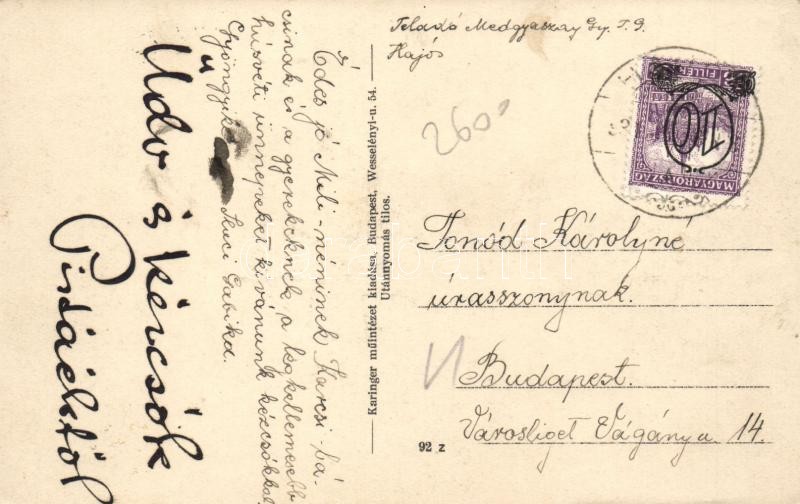 Feladó Medgyaszay Gy. T. I.
Hajós
10
FILLÉR
MAGYARORSZÁG
260.-
Édes jó Mili-néninek Karcsi bá-
csinak és a gyerekeknek a legkellemesebb
húsvéti ünnepeket kívánunk kézcsókkal
Gyöngyike Stuci Gabika.
Üdv és kézcsók
Pistáéktól
Karinger műintézet kiadása, Budapest, Wesselényi-u. 54.
Utánnyomás tilos.
Tonód Károlyné
úrasszonynak.
Budapest.
Városliget Vágánya 14.
92 z